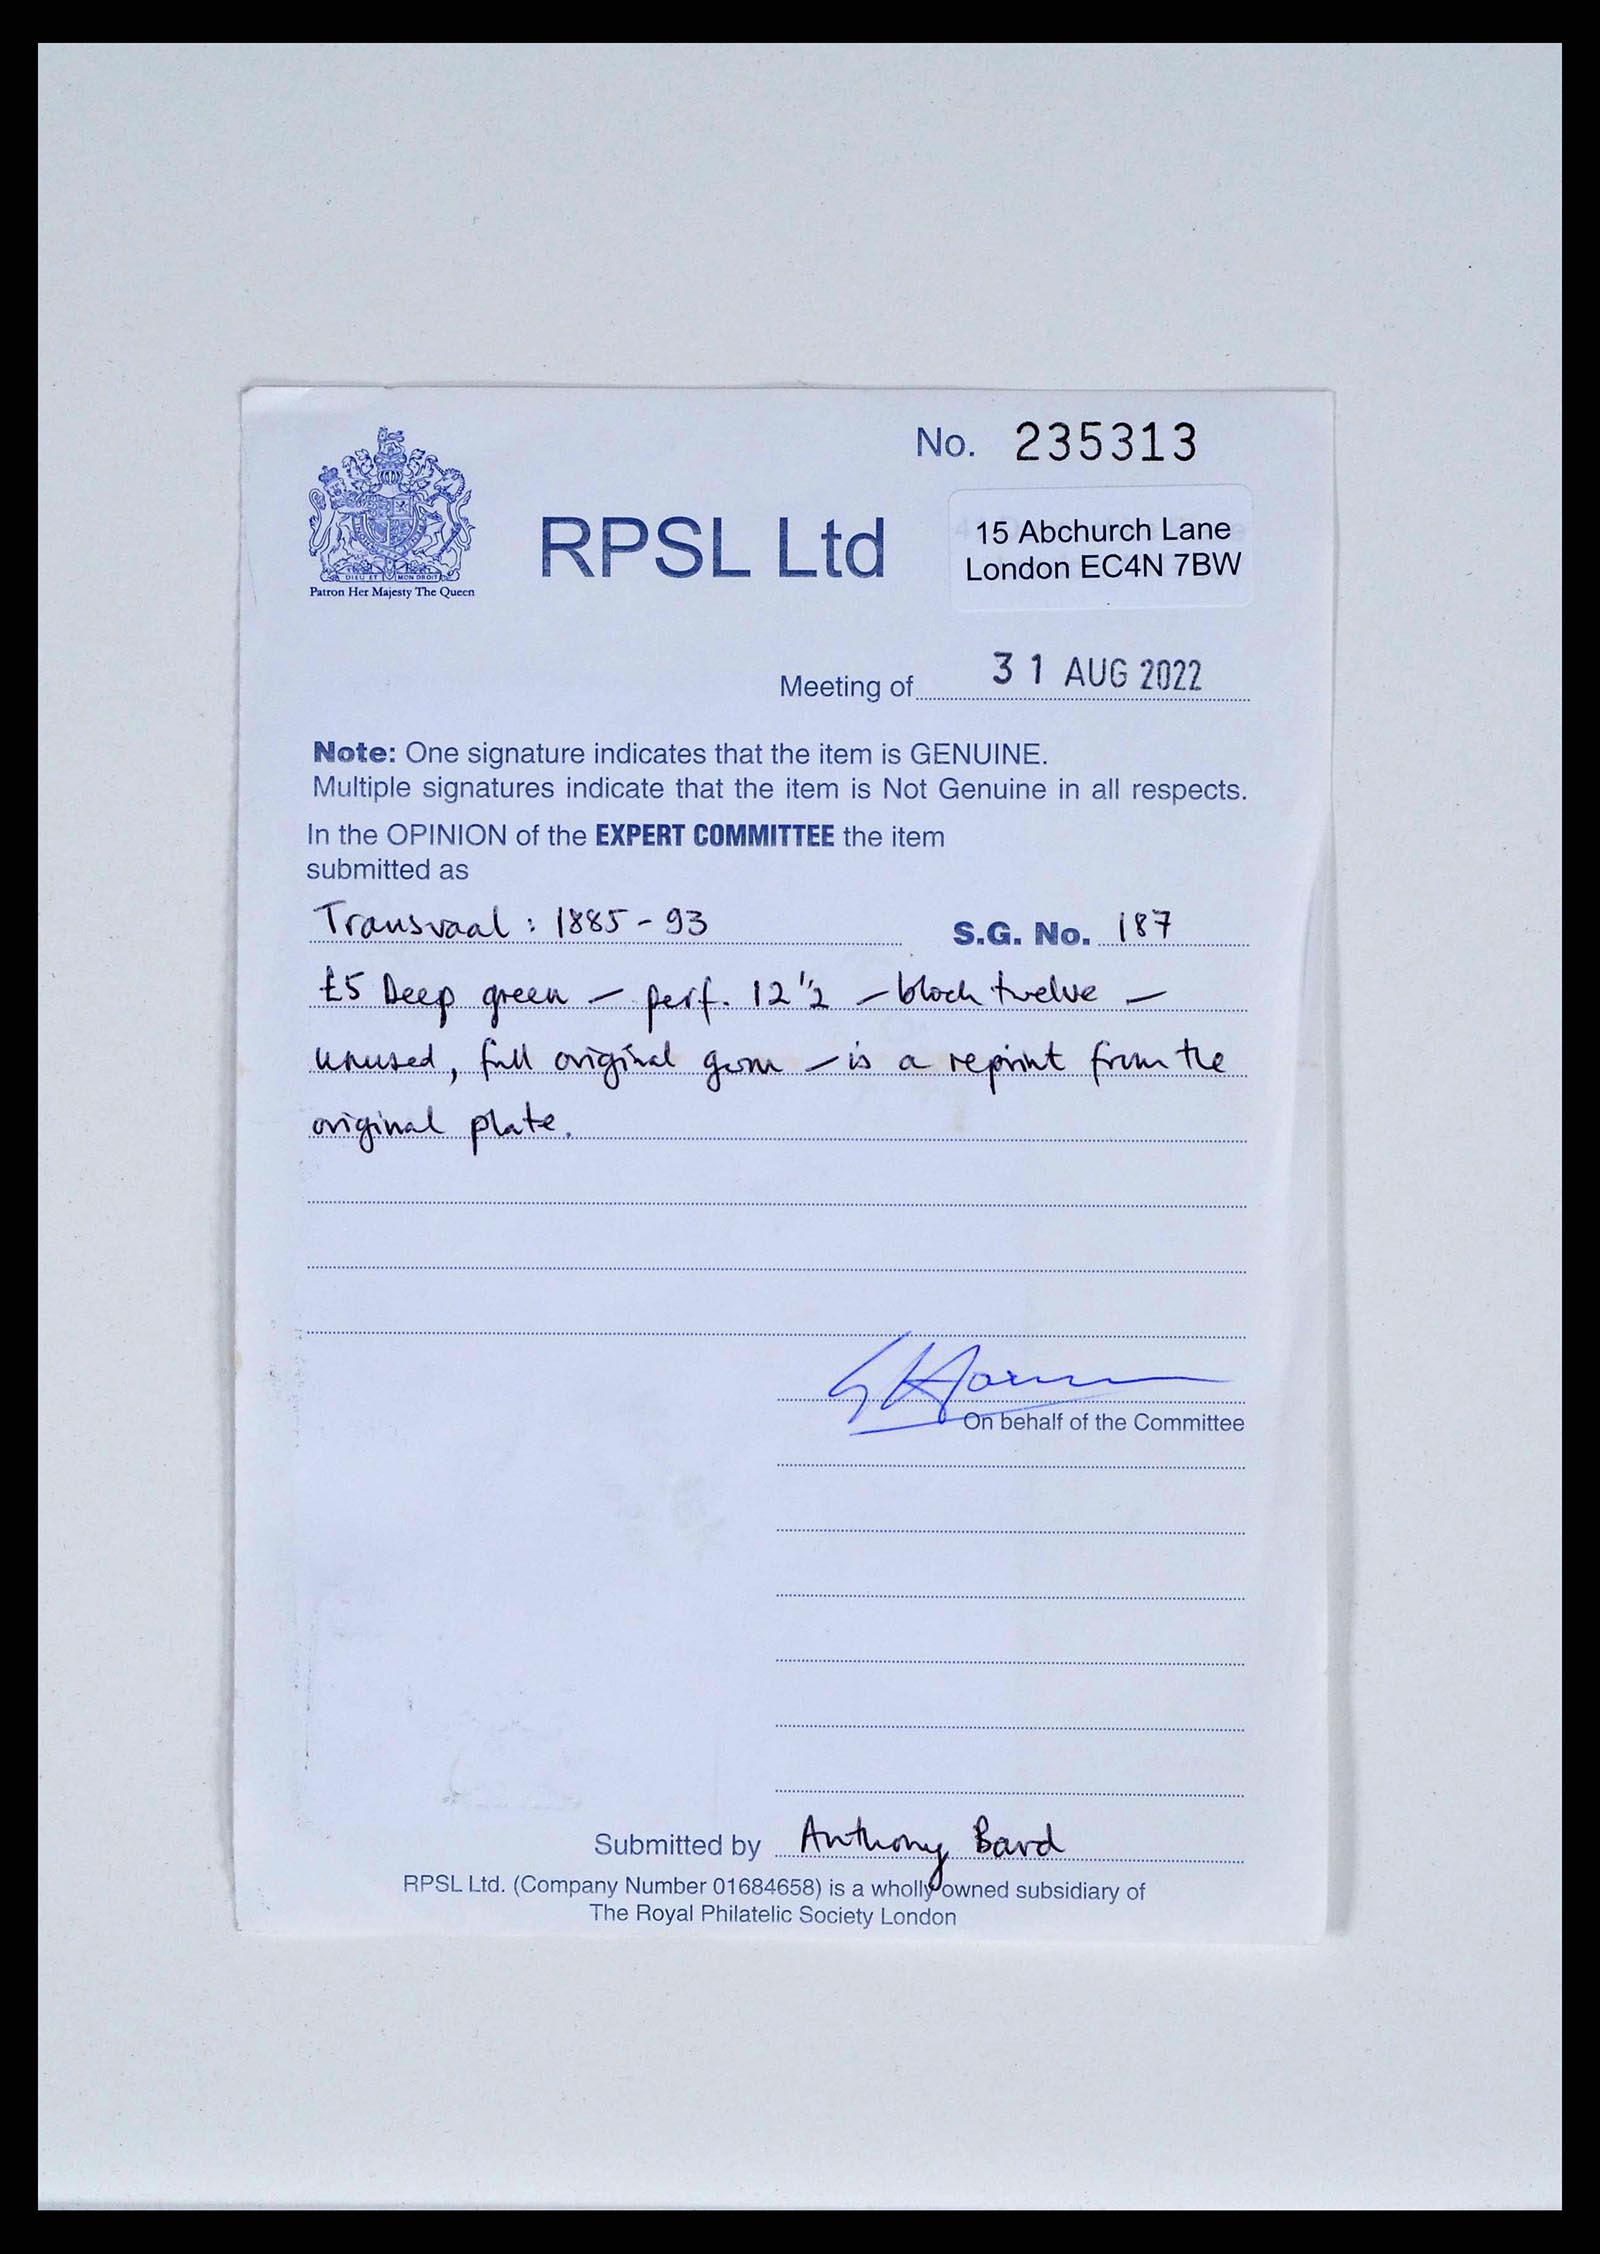 No. 235313
RPSL Ltd
15 Abchurch Lane
London EC4N 7BW
DIEU ET MON DROIT
Patron Her Majesty The Queen
Meeting of 31 AUG 2022
Note: One signature indicates that the item is GENUINE.
Multiple signatures indicate that the item is Not Genuine in all respects.
In the OPINION of the EXPERT COMMITTEE the item
submitted as
Transvaal : 1885-93 S.G. No. 187
£5 Deep green – perf. 12 1/2 – block twelve –
unused, full original gum – is a reprint from the
original plate.
On behalf of the Committee
Submitted by Anthony Bard
RPSL Ltd. (Company Number 01684658) is a wholly owned subsidiary of
The Royal Philatelic Society London